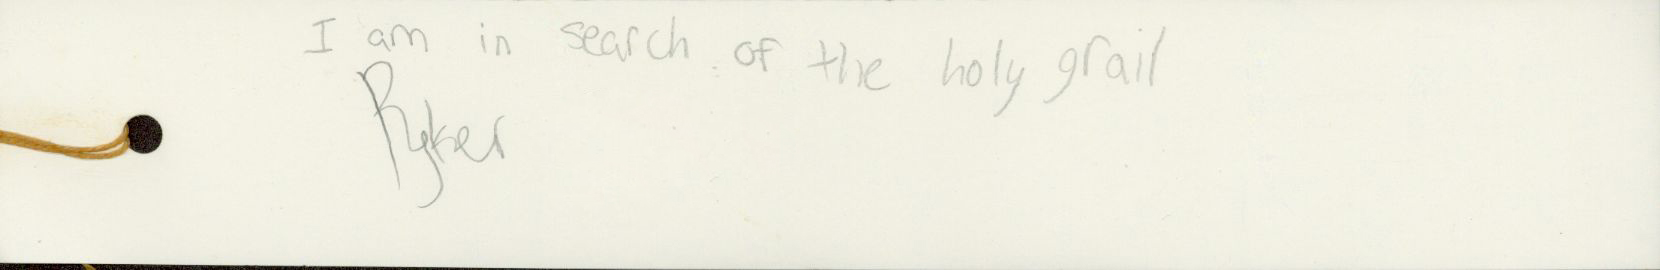 I am in search of the holy grail
Ryker